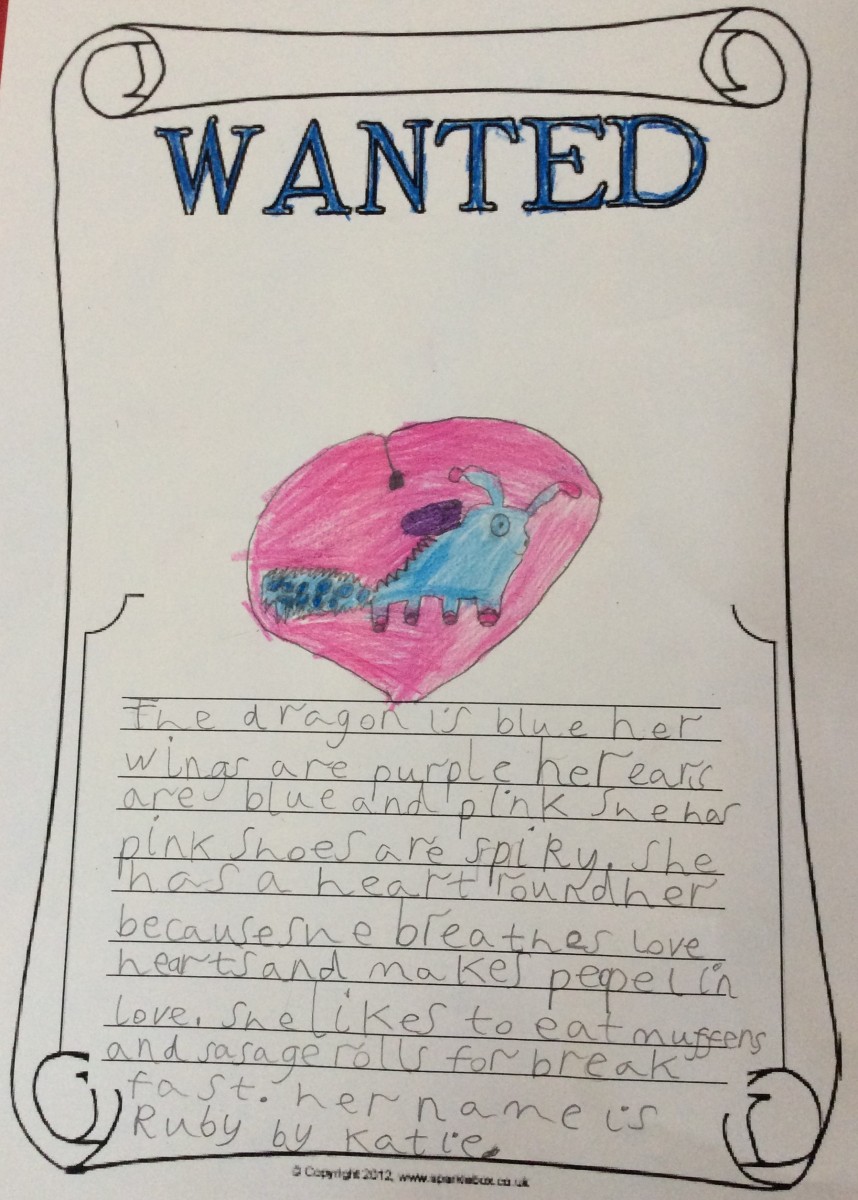 WANTED
The dragon is blue her
wings are purple her ears
are blue and pink she has
pink shoes are spiky. She
has a heart round her
because she breathes love
hearts and makes peopel in
love. She likes to eat muffens
and sasage rolls for break
fast. her name is
Ruby by Katie.
© Copyright 2012, www.sparklebox.co.uk